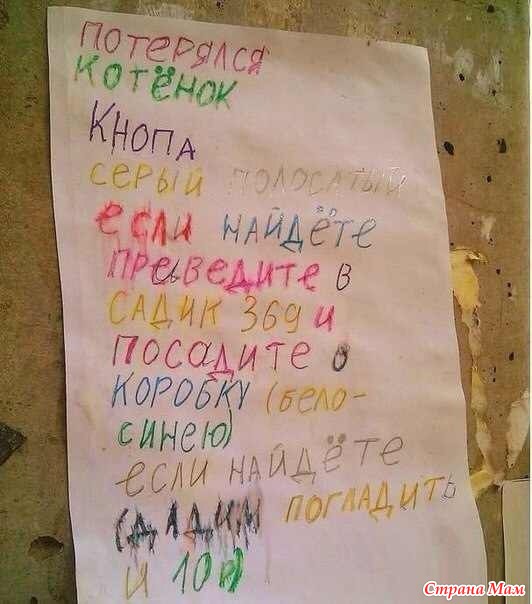 ПОТЕРЯЛСЯ
КОТЁНОК
КНОПА
СЕРЫЙ ПОЛОСАТЫЙ
если НАЙДЁТЕ
ПРЕВЕДИТЕ В
САДИК 369 и
ПОСАДИТЕ В
КОРОБКУ (бело-
синею)
если НАЙДЁТЕ
ДАДИМ ПОГЛАДИТЬ
И 10р
Страна Мам